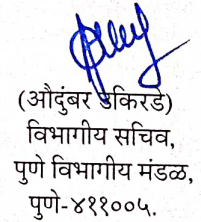 (औदुंबर उकिरडे)
विभागीय सचिव,
पुणे विभागीय मंडळ,
पुणे-४११००५.